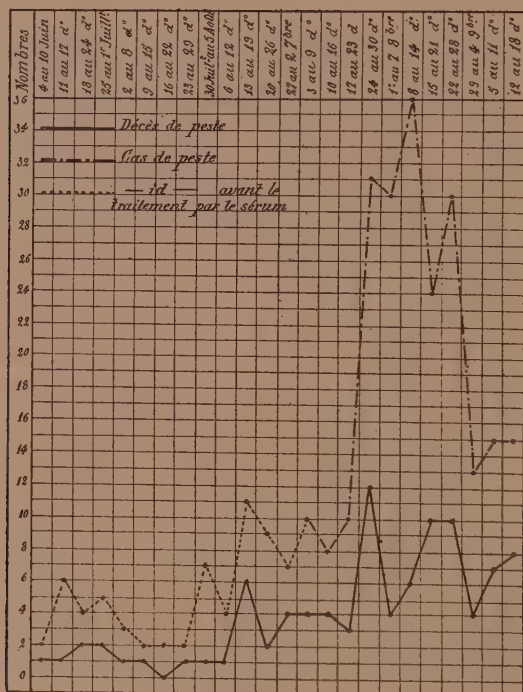 Nombres
4 au 10 Juin
11 au 17 d°
18 au 24 d°
25 au 1er Juill!
2 au 8 d°
9 au 15 d°
16 au 22 d°
23 au 29 d°
6 au 12 d°
13 au 19 d°
20 au 26 d°
27 au 2 7bre
3 au 9 d°
10 au 16 d°
17 au 23 d
24 au 30 d°
1er au 7 8bre
8 au 14 d°
15 au 21 d°
22 au 28 d°
29 au 4 9bre
5 au 11 d°
12 au 18 d°
36
34
32
30
28
26
24
22
20
18
16
14
12
10
8
6
4
2
0
Décès de peste
Cas de peste
— id — avant le
traitement par le sérum